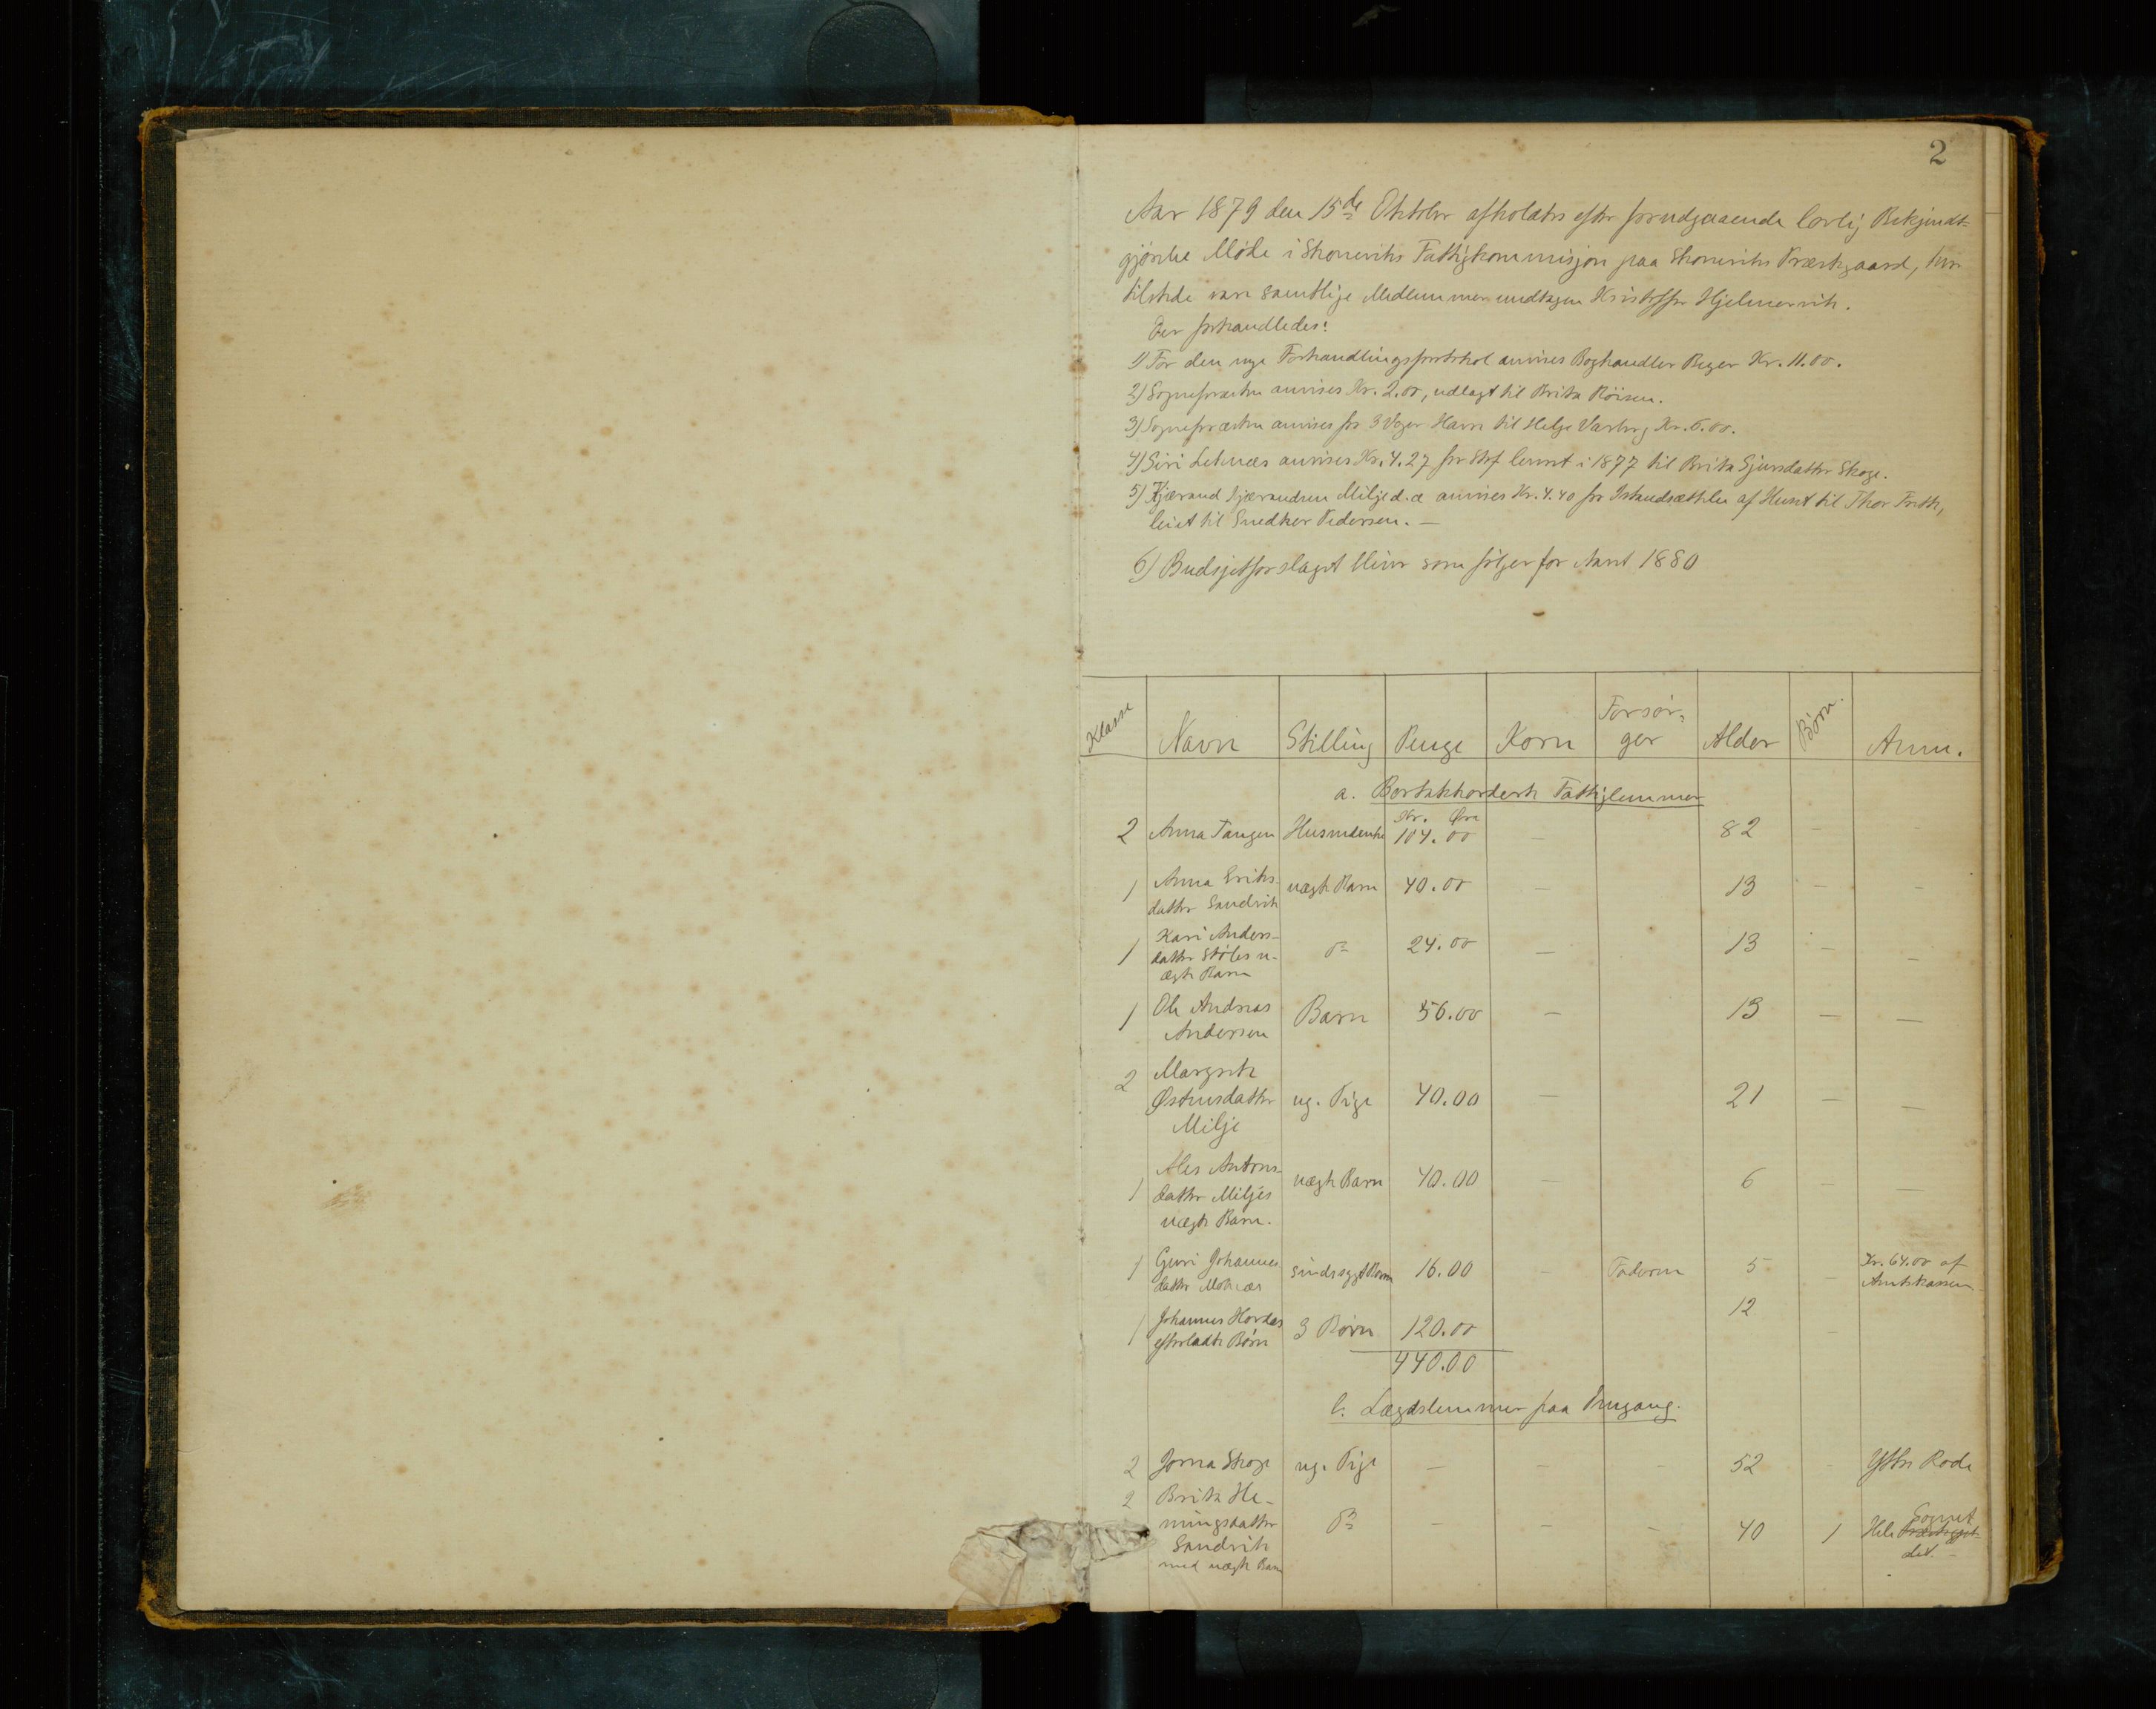 2
Aar 1879 den 15de Oktober afholdtes efter forudgaaende lovlig Bekjendt-
gjörelse Möde i Skoneviks Fattigkommisjon paa Skoneviks Præstegaard, hvor
tilstede vare samtlige Medlemmer undtagen Kristoffer Hjelmervik.
Der forhandledes:
1) For den nye Forhandlingsprotokol anvises Boghandler Beyer Kr. 11.00.
2) Sognepræsten anvises Kr. 2.00, udlagt til Brita Röisen.
3) Sognepræsten anvises for 3 Voger Havre til Helge Varberg Kr. 6.00.
4) Siri Leknæs anvises Kr. 4.27 for Stof levert i 1877 til Brita Sjursdatter Skoge.
5) Kjærand Kjærandsen Milje d.æ anvises Kr. 4.40 for Istandsættelse af Huset til Thor Frette,
leiet til Snedker Pedersen. —
6) Budsjetforslaget bliver som fölger for Aaret 1880
Klasse Navn Stilling Penge Korn Forsör-
ger Alder Börn. Anm.
a. Bortakkorderte Fattiglemmer
Kr. Öre
2 Anna Tangen Husmdenke 104.00 — 82 — —
1 Anna Eriks-
datter Sandvik uægte Barn 40.00 — 13 — —
1 Kari Anders-
datter Stöles u-
ægte Barn do 24.00 — 13 — —
1 Ole Andreas
Andersen Barn 56.00 — 13 — —
2 Margrete
Østensdatter
Milje ug. Pige 40.00 — 21 — —
1 Ales Antons-
datter Miljes
uægte Barn. uægte Barn 40.00 — 6 — —
1 Guri Johannes
datter sindssygt Barn 16.00 — Faderen 5 — Kr. 64.00 af
Amtskassen
1 Johannes Hordas
efterladte Börn 3 Börn 120.00 12 —
440.00
b. Lægdslemmer paa Omgang.
2 Jorna Skoge ug. Pige — — — 52 — Ytre Rode
2 Brita He-
mingsdatter
Sandvik
med uægte Barn do — — — 40 1 Hele Sognet
Præstegjel-
det. —